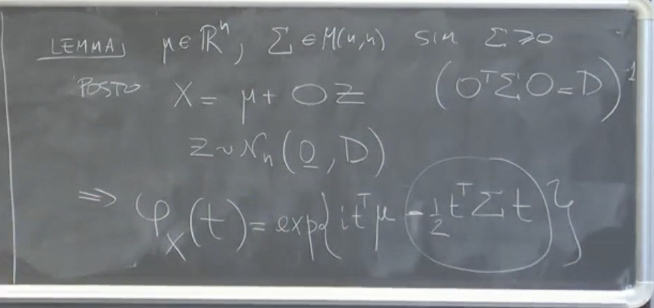 LEMMA, μ∈ℝⁿ, Σ∈M(n,n) sim Σ⩾0
POSTO X = μ + OZ (OᵀΣO=D)
Z∼Nₙ(0, D)
⇒ φ_X(t) = exp{itᵀμ - ½tᵀΣt}